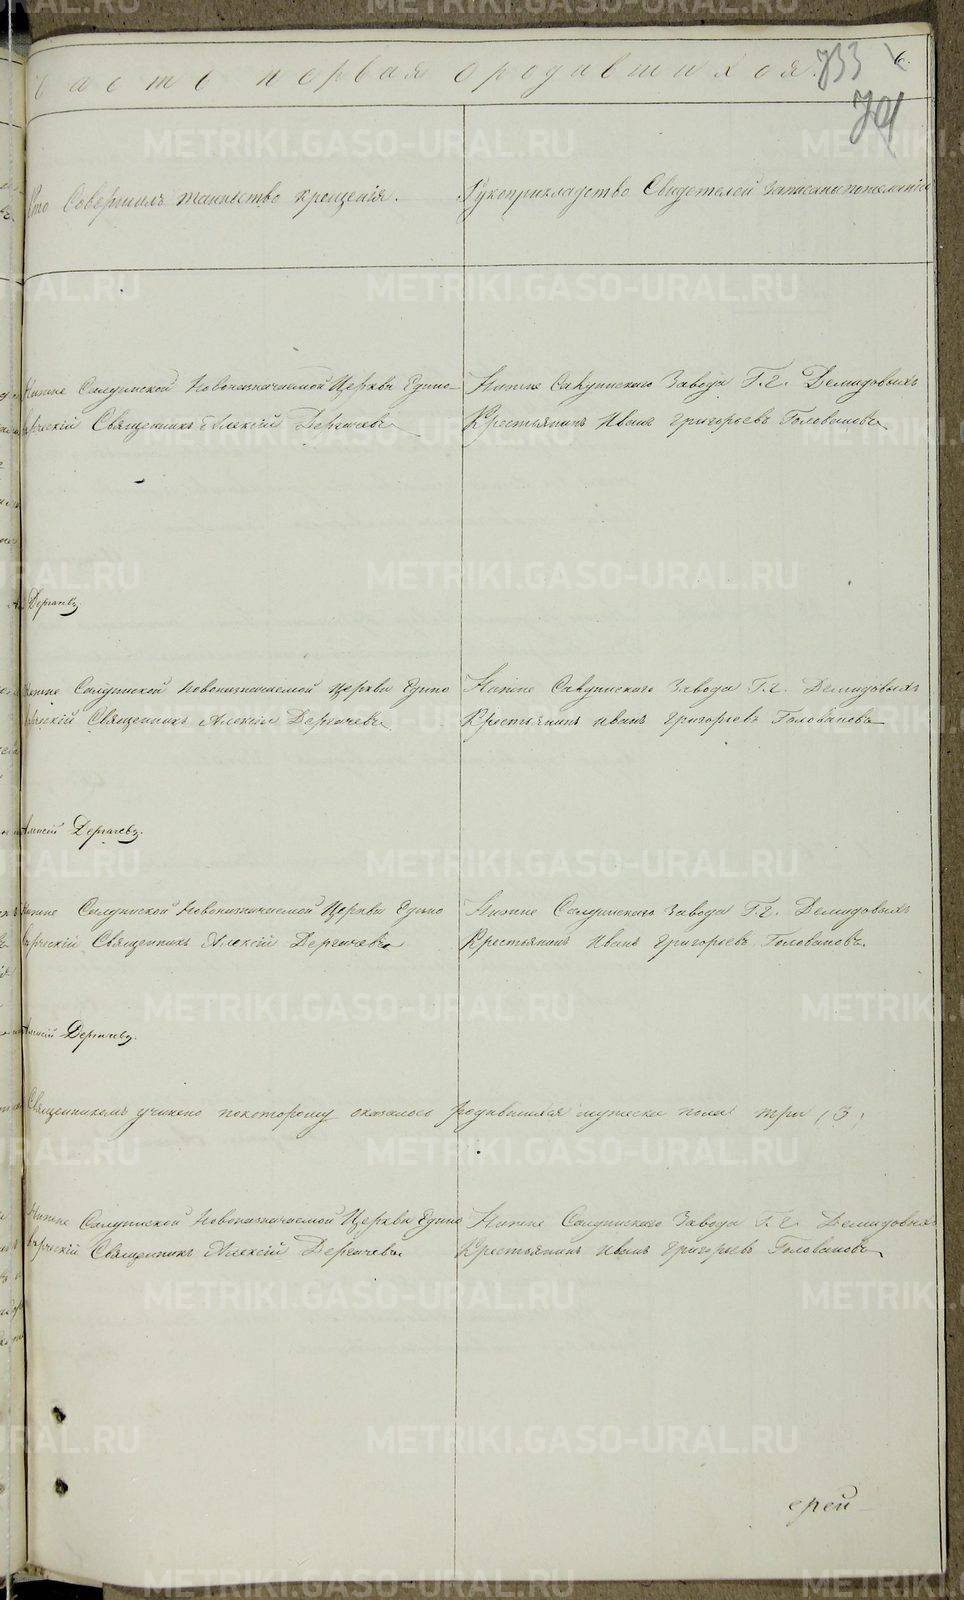 Часть первая о родившихся.
733
6.
Кто Совершилъ таинство крещенія.
Рукоприкладство Свидетелей записи по желанію
Нижне Салдинской Новоназначаемой Церкви Едино-
верческій Священникъ Алексій Дергачевъ
Нижне Салдинскаго Завода Г.г. Демидовыхъ
Крестьянинъ Иванъ Григорьевъ Головановъ
Дергачевъ
Нижне Салдинской Новоназначаемой Церкви Едино
верческій Священникъ Алексій Дергачевъ
Нижне Салдинскаго Завода Г.г. Демидовыхъ
Крестьянинъ Иванъ Григорьевъ Головановъ
Алексій Дергачевъ.
Нижне Салдинской Новоназначаемой Церкви Едино
верческій Священникъ Алексій Дергачевъ
Нижне Салдинскаго Завода Г.г. Демидовыхъ
Крестьянинъ Иванъ Григорьевъ Головановъ.
Алексій Дергачевъ.
Священникомъ учинено покоторому оказалось родившихся мужеска пола три (3)
Нижне Салдинской Новоназначаемой Церкви Едино
верческій Священникъ Алексій Дергачевъ
Нижне Салдинскаго Завода Г.г. Демидовыхъ
Крестьянинъ Иванъ Григорьевъ Головановъ
ерей
METRIKI.GASO-URAL.RU